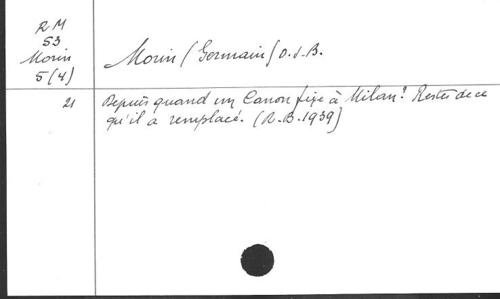 RM
53
Morin
5(4)
Morin (Germain) O.S.B.
21
Depuis quand un Canon fixe à Milan? Restes de ce
qu'il a remplacé. (R.B. 1939)